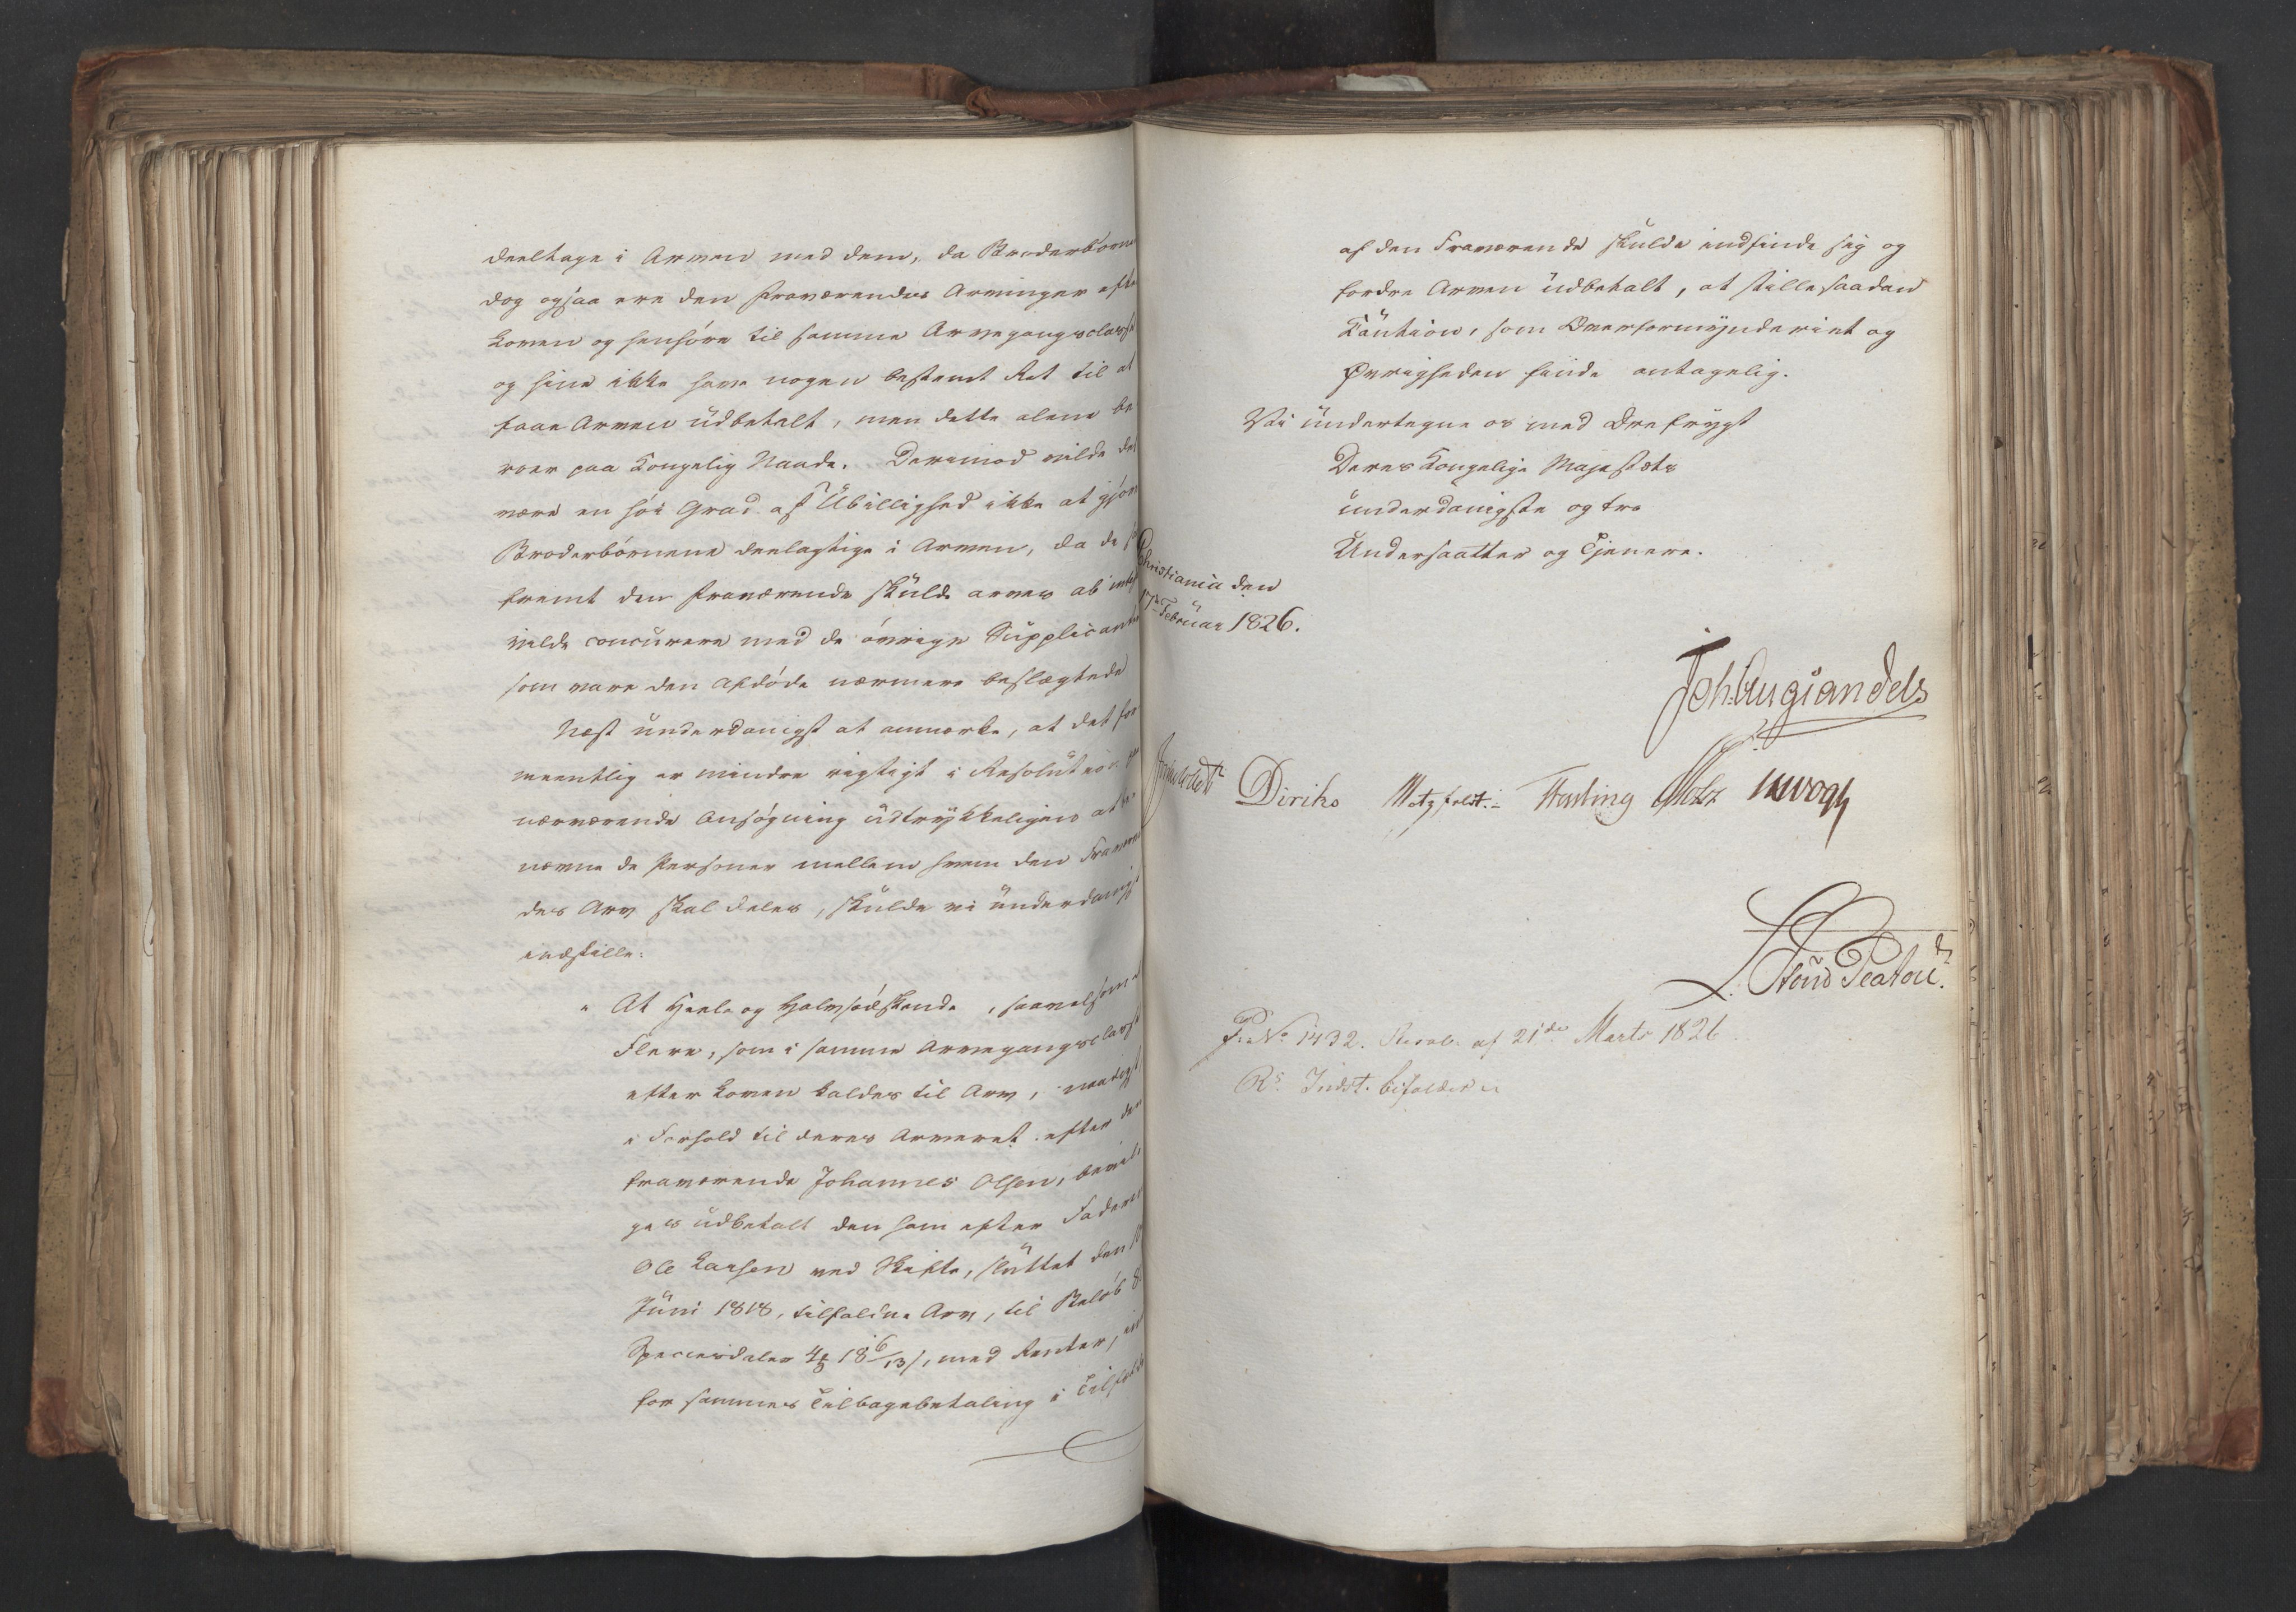 deeltage i Arven med dem, da Broderbørne
dog ogsaa ere den fraværendes Arvinger efte
Loven og henhøre til samme Arvegangsclasse
og hine ikke have nogen bestemt Ret til at
faae Arven udbetalt, men dette alene be
roer paa Kongelig Naade. Derimod vilde det
være en høi Grad af Ubillighed ikke at gjøre
Broderbørnene deelagtige i Arven, da de
fremt den fraværende skulde arves ab intest
vilde concurrere med de øvrige Supplicanter
som vare den Afdøde nærmere beslægtede
Næst underdanigst at anmærke, at det for
meentlig er mindre rigtigt i Resolution
nærværende Ansøgning udtrykkeligen at be
nævne de Personer mellem hvem den Fraværen
des Arv skal deles, skulde vi underdanigst
indstille:
" At Heele og Halvsødskende, saavelsom
Flere, som i samme Arvegangsclasse
efter Loven kaldes til Arv, naadigst
i Forhold til deres Arveret efter den
fraværende Johannes Olsen, bevil
ges udbetalt den ham efter Faderen
Ole Larsen ved Skifte, sluttet den
Juni 1818, tilfaldne Arv, til Beløb
Speciesdaler 4 ₰ 18 6/13 s, med Renter,
for sammes Tilbagebetaling i Tilfælde
af den Fraværende skulde indfinde sig og
fordre Arven udbetalt, at stille saadan
Caution, som Overformynderiet og
Øvrigheden finde antagelig.
Vi undertegne os med Ærefrygt
Deres Kongelige Majestæts
underdanigste og tro
Undersaatter og Tjenere.
Christiania den
17de Februar 1826.
Joh. Aug. Sandels
Diriks Motzfeldt. Fasting Holst JHVogt
P. No 1432. Resol. af 21de Marts 1826
Rs Indst. bifaldes